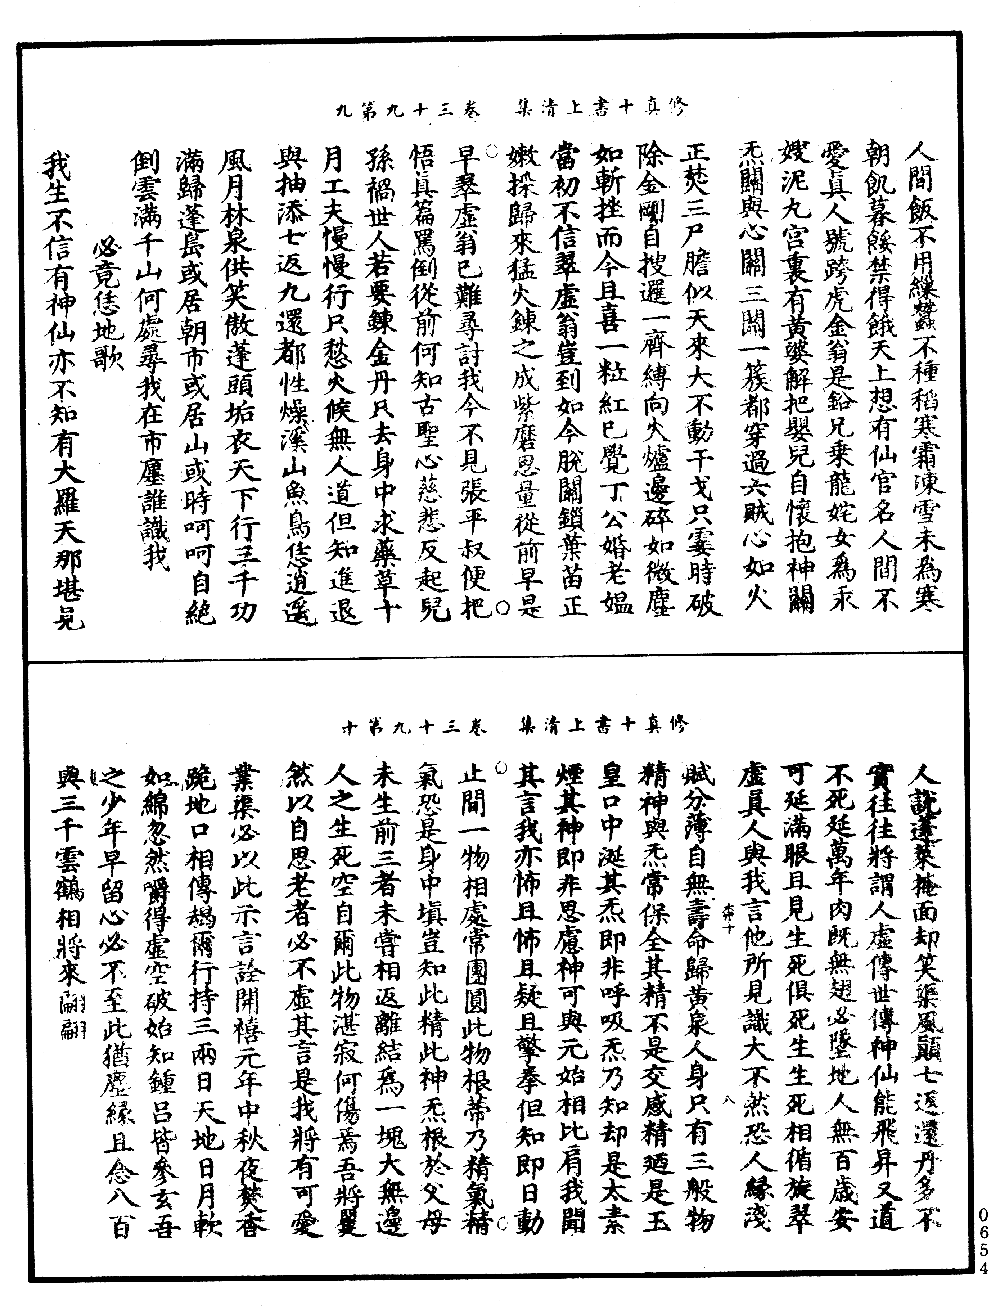 修真十書上清集 卷三十九第九
人間飯不用繰蠶不種稻寒霜凍雪未為寒
朝飢暮餒禁得餓天上想有仙官名人間不
愛真人號跨虎金翁是鉛兄乗龍姹女為汞
嫂泥丸宮裏有黃婆解把嬰兒自懷抱神關
炁關與心關三關一簇都穿過六賊心如火
正焚三尸膽似天來大不動干戈只霎時破
除金剛自搜邏一齊縛向火爐邊碎如微塵
如斬挫而今且喜一粒紅已覺丁公婚老媼
當初不信翠虛翁豈到如今脫關鎖葉苗正
嫩採歸來猛火鍊之成紫磨思量從前早是
早翠虛翁已難尋討我今不見張平叔便把
悟真篇罵倒從前何知古聖心慈悲反起兒
孫禍世人若要鍊金丹只去身中求藥草十
月工夫慢慢行只愁火候無人道但知進退
與抽添七返九還都性燥溪山魚鳥恁逍遥
風月林泉供笑傲蓬頭垢衣天下行三千功
滿歸蓬島或居朝市或居山或時呵呵自絕
倒雲滿千山何處尋我在市廛誰識我
必竟恁地歌
我生不信有神仙亦不知有大羅天那堪見
修真十書上清集 卷三十九第十
人說蓬萊掩面却笑渠風顛七返還丹多不
實往往將謂人虛傳世傳神仙能飛昇又道
不死延萬年肉既無翅必墜地人無百歲安
可延滿眼且見生死俱死生生死相循旋翠
虛真人與我言他所見識大不然恐人緣淺
賦分薄自無壽命歸黃泉人身只有三般物
精神與炁常保全其精不是交感精廼是玉
皇口中涎其炁即非呼吸炁乃知却是太素
煙其神即非思慮神可與元始相比肩我聞
其言我亦怖且怖且疑且擎拳但知即日動
止間一物相處常團圓此物根蒂乃精氣精
氣恐是身中填豈知此精此神炁根於父母
未生前三者未嘗相返離結為一塊大無邊
人之生死空自爾此物湛寂何傷焉吾將翼
然以自思老者必不虛其言是我將有可愛
業渠必以此示言詮開禧元年中秋夜焚香
跪地口相傳朅爾行持三兩日天地日月軟
如綿忽然嚼得虛空破始知鍾呂皆參玄吾
之少年早留心必不至此猶塵緣且念八百
與三千雲鶴相將來翩翩
0654